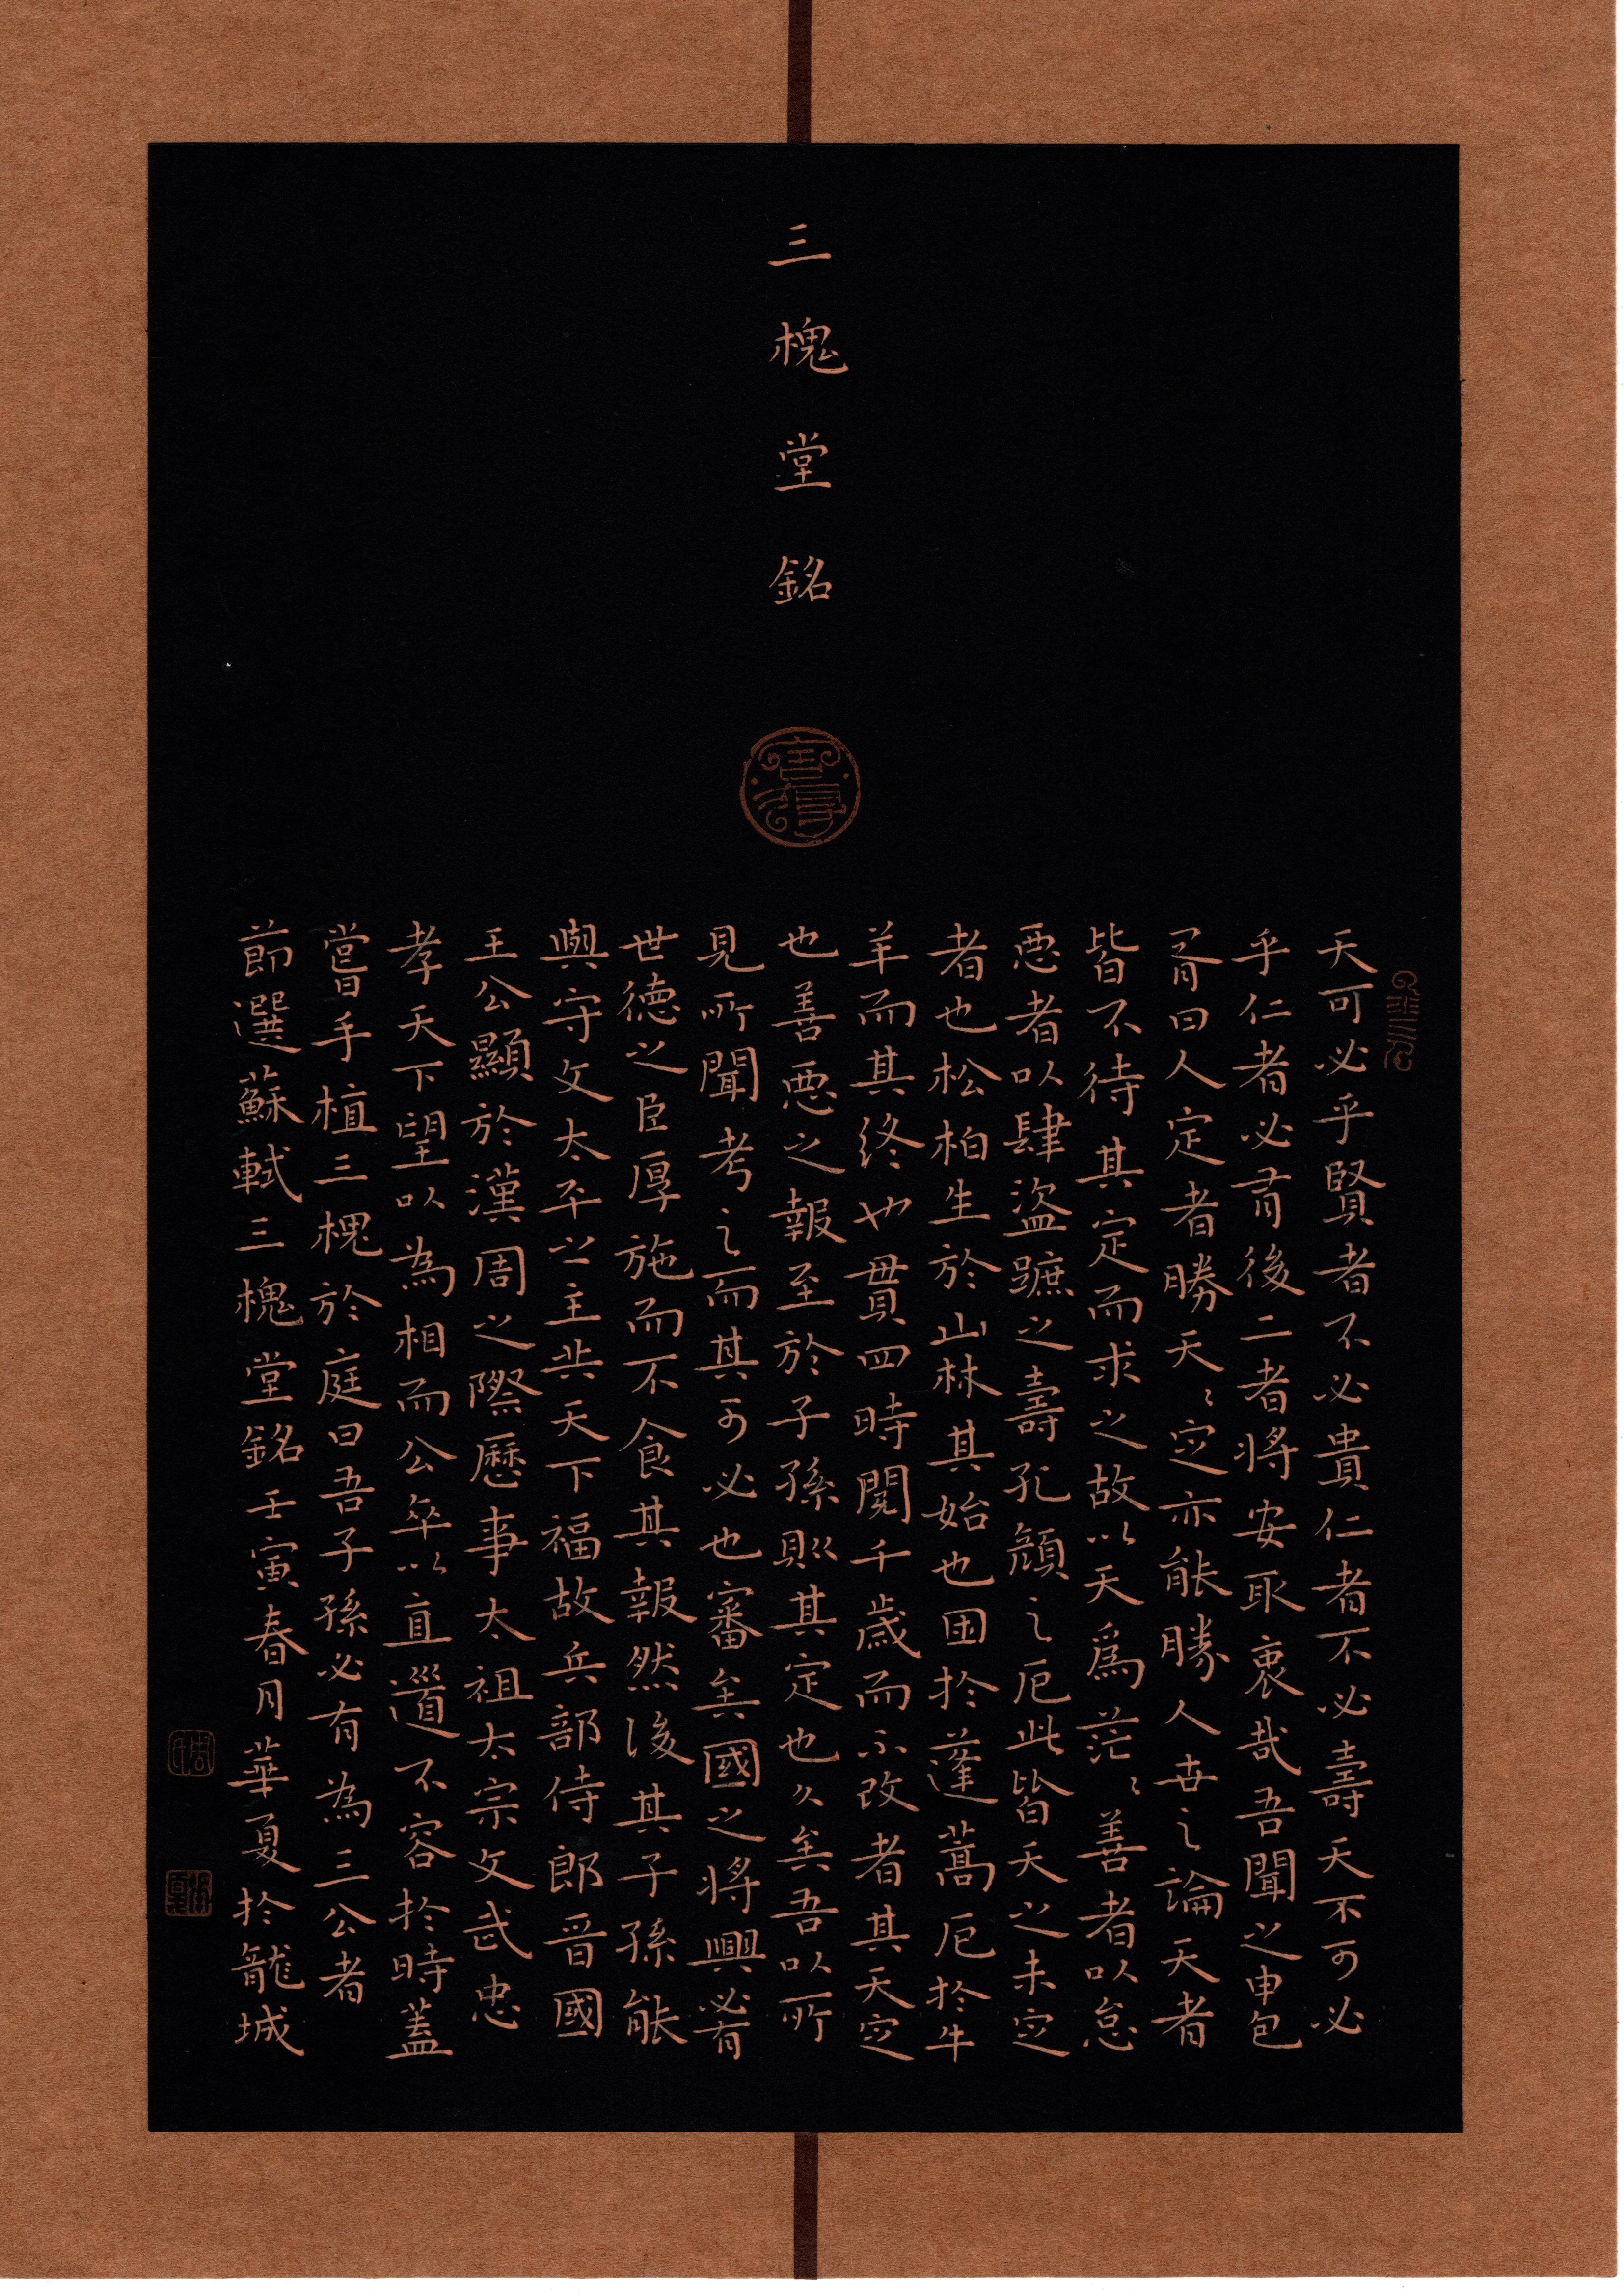 三槐堂銘
天可必乎賢者不必貴仁者不必壽天不可必
乎仁者必有後二者將安取衷哉吾聞之申包
胥曰人定者勝天〻定亦能勝人世之論天者
皆不待其定而求之故以天爲茫〻善者以怠
惡者以肆盜蹠之壽孔顏之厄此皆天之未定
者也松柏生於山林其始也困於蓬蒿厄於牛
羊而其終也貫四時閱千歲而不改者其天定
也善惡之報至於子孫則其定也久矣吾以所
見所聞考之而其可必也審矣國之將興必有
世德之臣厚施而不食其報然後其子孫能
與守文太平之主共天下福故兵部侍郎晉國
王公顯於漢周之際歷事太祖太宗文武忠
孝天下望以為相而公卒以直道不容於時蓋
嘗手植三槐於庭曰吾子孫必有為三公者
節選蘇軾三槐堂銘壬寅春月華夏於龍城